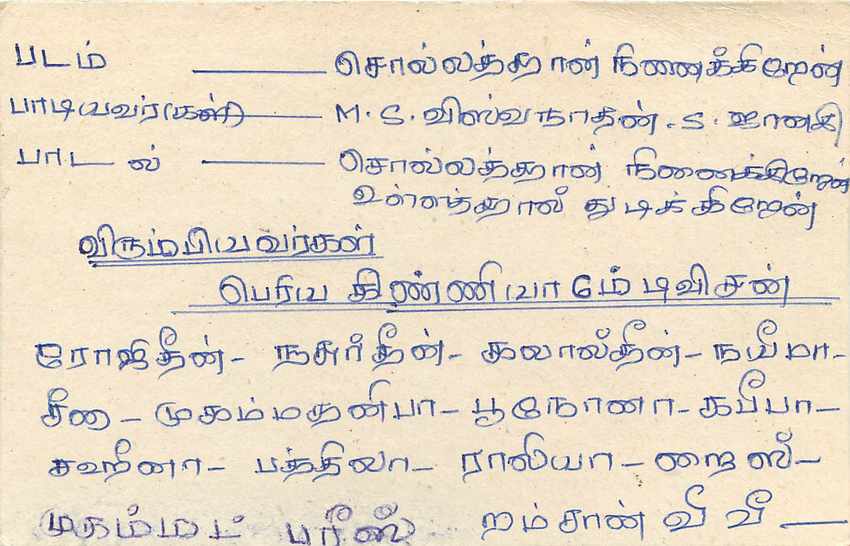 படம் ——— சொல்லத்தான் நினைக்கிறேன்
பாடியவர்(கள்) ——— M. S. விஸ்வநாதன். S. ஜானகி
பாடல் ——— சொல்லத்தான் நினைக்கிறேன்
உள்ளத்தால் துடிக்கிறேன்
விரும்பியவர்கள்
பெரிய கிண்ணியா 6ம் டிவிசன்
ரோஜிதீன் - நசுர்தீன் - கலால்தீன் - நயீமா -
சீனா - முகம்மதனிபா - பூநோனா - கபீபா -
சஹீனா - பத்திலா - ராலியா - றைஸ் -
முகம்மட் பரீஸ் றம்சான் வீ வீ —